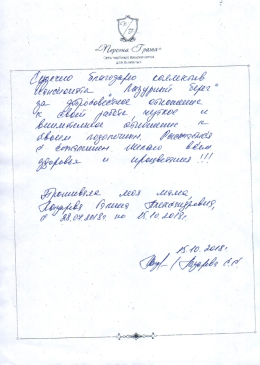 «Перетта Грана»
Сердечно благодарю коллектив
пансионата "Лазурный берег"
за добросовестное отношение
к своей работе, чуткое и
внимательное отношение к
своим подопечным.
с
здоровья и процветания !!!
Проживала моя мама,
Лазарева Галина Александровна,
с 28.04.2018г по 15.10.2018г.
15.10.2018г
/ Лазарева С.